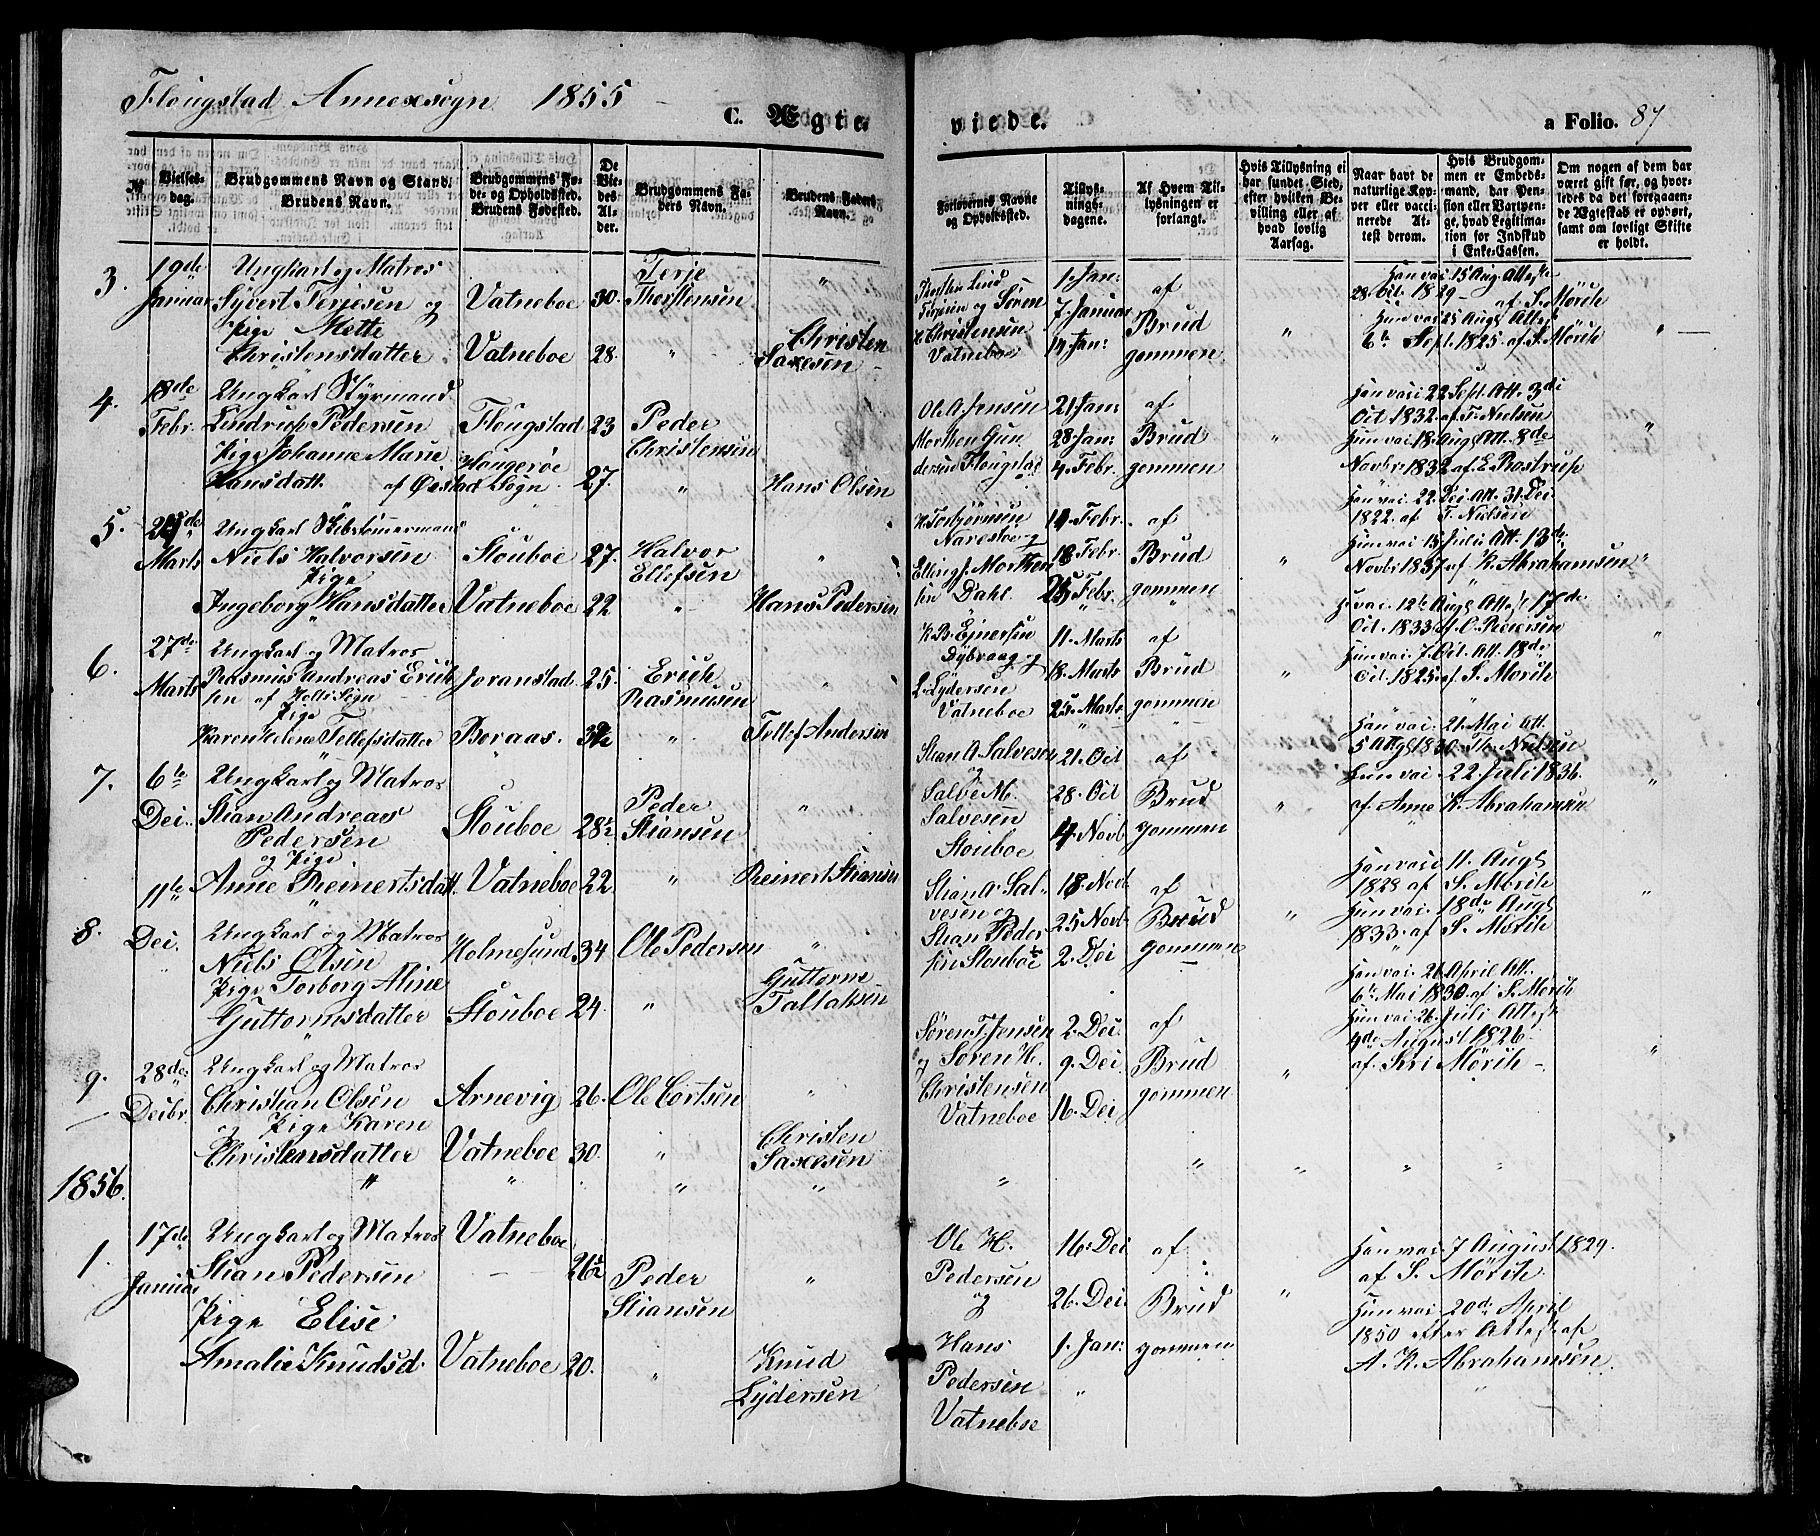 Flougstad Annexsogn 1855
C. Ægte
viede.
a Folio. 87
№
Vielses-dag.
Brudgommens Navn og Stand.
Brudens Navn.
Brudgommens Føde- og Opholdsted.
Brudens Fødested.
De Viedes Alder.
Brudgommens Faders Navn.
Brudens Faders Navn.
Forlovernes Navne og Opholdsted.
Tillysningsdagene.
Af Hvem Tillysningen er forlangt.
Hvis Tillysning ei har fundet Sted, efter hvilken Bevilling eller af hvad lovlig Aarsag.
Naar havt de naturlige Kopper eller vaccinerede Attest derom.
Hvis Brudgommen er Embedsmand, har Pension eller Vartpenge, hvad Legitimation for Indskud i Enke-Cassen.
Om nogen af dem har været gift før, og hvorledes da det foregaaende Ægteskab er ophørt, samt om lovligt Skifte er holdt.
3. 19de Januar
Ungkarl og Matros
Syvert Terjesen og
Pige Mette
Christensdatter
Vatneboe 30. Terje Thorstensen "
Vatneboe 28. " Christen Saxesen
Thosten Lind
Terjesen og Søren
H. Christensen
Vatneboe
1. Jan:
7. Januar
14. Jan:
af Brudgommen
"
Han vac. 15 Aug. Atteste
28. Oct. 1829 af S. Mörch
Hun vac. 25 Augt Attest
6te Sept. 1825 af S. Mörch
"
4. 18de Febr.
Ungkarl Styrmand
Lindrup Pedersen
Pige Johanne Marie
Hansdatt. af Øiestad Sogn
Flougstad 23 Peder Christensen
Hougerøe 27. " Hans Olsen
Ole A. Jensen
Morthen Gun
dersen Flougstad
21. Jan:
28. Jan:
4. Febr.
af Brudgommen
"
Han vac. 22 Sept. Att. 3di
Oct. 1832 af T. Nielsen
Hun vac. 18. Augt Att. 8de
Novbr 1832 af E. Rostrup
"
5. Marts
Ungkarl Skibstømermand
Niels Halvorsen
Pige
Ingeborg Hansdatter
Stouboe 27. Halvor Ellefsen "
Vatneboe 22 " Hans Pedersen
K. Torbjørnsen
Narestøe og
Elling J. Morthen
sen Dahl.
11. Febr.
18 Febr.
25 Febr.
af Brudgommen
"
Han vac. 22. Dec. Att. 31. Dec.
1822. af T. Nielsen
Hun vac. 15 Juli Att. 13de
Novbr 1837 af K. Abrahamsen
"
6. 27de Marts
Ungkarl og Matros
Rasmus Andreas Erich
sen af Holts Sogn
Pige
Karen Helene Tellefsdatter
Joranstad 25. Erich Rasmusen "
Boraas. " Tellef Andersen
K. B. Ejnersen
Dybvaag og
L. Lydersen
Vatneboe
11. Marts
18. Marts
25. Marts
af Brudgommen
"
H. vac. 12te Augt Attest 17de
Oct. 1833 af C. Pedersen
Hun vac. 7 Oct. Att. 18de
Oct. 1825 af S. Mörch
"
7. 6te Dec.
Ungkarl og Matros
Stian Andreas
Pedersen
og Pige
Anne Reinertsdatt.
Stouboe 28½ Peder Stiansen "
Vatneboe 22. " Reinert Stiansen
Stian A. Salvesen
og
Salve M.
Salvesen
Stouboe
21. Oct
28. Oct
4. Novb.
af Brudgommen
"
Han vac. 21. Mai Att.
5 Augt 1830 Th. Nielsen
Hun vac. 22 Juli 1836.
af Anne K. Abrahamsen
"
8. 11te Dec.
Ungkarl og Matros
Niels Olsen
Pige Torborg Aline
Guttormsdatter
Holmesund 34 Ole Pedersen "
Stouboe 24. " Guttorm Taltaksen
Stian A. Sal-
vesen og
Stian Peder
sen Stouboe
18. Novb.
25. Novb.
2. Dec
af Brudgommen
"
Han vac. 11. Augt
1828 af S. Mörch
Hun vac. 18de Augt
1833 af S. Mörch
"
9. 28de Decbr.
Ungkarl og Matros
Christian Olsen
og Pige Karen
Christensdatter
Arnevig 26. Ole Cortsen "
Vatneboe 30. " Christen Saxesen
Søren T. Jensen
og Søren H.
Christensen
Vatneboe
2. Dec.
9. Dec
16. Dec
af Brudgommen
"
Han vac. 21 April Att.
6te Mai 1830 af S. Mörch
Hun vac. 26. Juli Attest
9de August 1826
af Siri Mörch
"
1856.
1. 17de Januar
Ungkarl og Matros
Stian Pedersen
Pige Elise
Amalie Knudsd.
Vatneboe 26½ Peder Stiansen "
Vatneboe 20. " Knud Lydersen
Ole H.
Pedersen
og
Hans
Pedersen
Vatneboe
16. Dec
26. Dec.
1. Jan:
af Brudgommen
"
Han vac. 7 August 1829.
af S. Mörch.
Hun vac. 20de April
1850 efter Attest af
A. K. Abrahamsen.